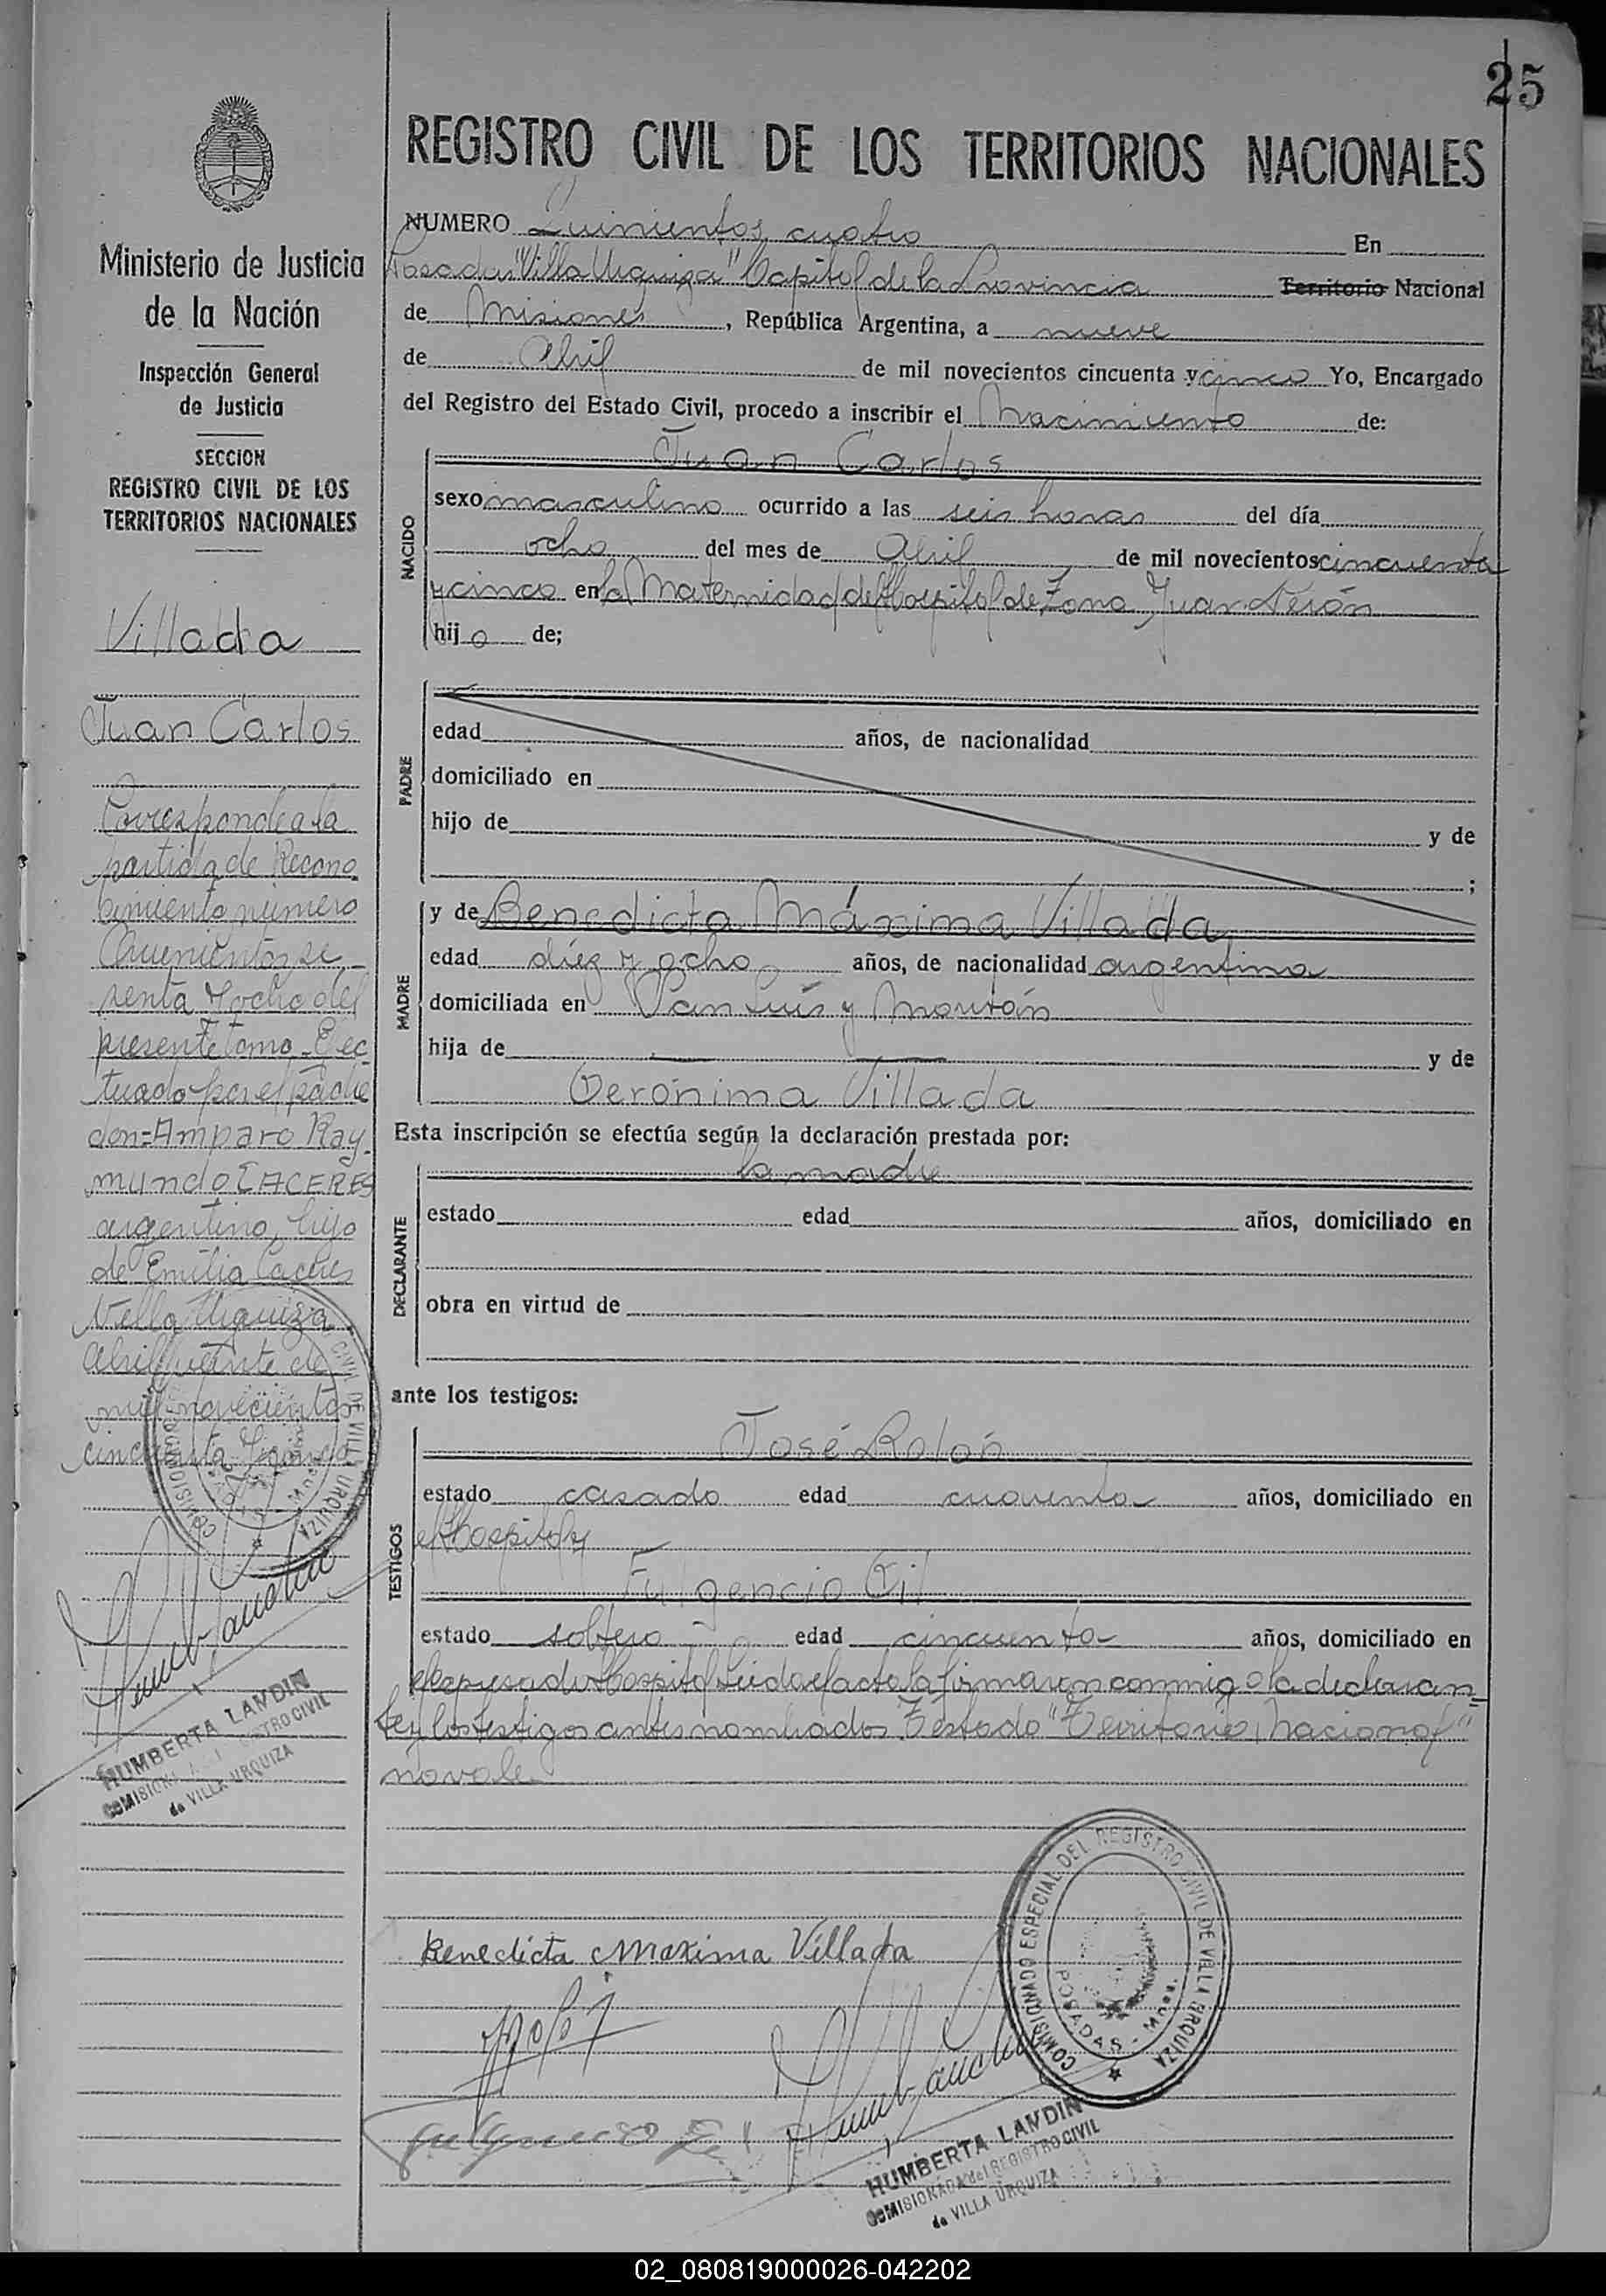 25
REGISTRO CIVIL DE LOS TERRITORIOS NACIONALES
Ministerio de Justicia
de la Nación
Inspección General
de Justicia
SECCION
REGISTRO CIVIL DE LOS
TERRITORIOS NACIONALES
Villada
Juan Carlos
Corresponde a la
partida de Recono
cimiento número
Quinientos se
senta y ocho del
presente tomo Efec
tuado por el padre
don=Amparo Ray
mundo CACERES
argentino, hijo
de Emilia Caceres
Villa Urquiza
Abril veinte de
mil novecientos
cincuenta y cinco
HUMBERTA LANDIN
COMISIONADA del REGISTRO CIVIL
de VILLA URQUIZA
NUMERO Quinientos cuatro En
Posadas "Villa Urquiza" Capital de la Provincia Territorio Nacional
de Misiones, República Argentina, a nueve
de Abril de mil novecientos cincuenta y cinco Yo, Encargado
del Registro del Estado Civil, procedo a inscribir el Nacimiento de:
NACIDO
Juan Carlos
sexo masculino ocurrido a las seis horas del día
ocho del mes de Abril de mil novecientos cincuenta
y cinco en la Maternidad del Hospital de Zona Juan Perón
hijo de;
PADRE
edad años, de nacionalidad
domiciliado en
hijo de y de
;
MADRE
y de Benedicta Máxima Villada
edad diez y ocho años, de nacionalidad argentina
domiciliada en San Luis y Moritán
hija de y de
Gerónima Villada
Esta inscripción se efectúa según la declaración prestada por:
DECLARANTE
la madre
estado edad años, domiciliado en
obra en virtud de
ante los testigos:
TESTIGOS
José Rolón
estado casado edad cuarenta años, domiciliado en
el hospital y
Fulgencio Gil
estado soltero edad cincuenta años, domiciliado en
el expresado Hospital Leida el acta la firmaron conmigo la declaran=
te y los testigos antes nombrados. Testado "Territorio, Nacional"
no vale
Benedicta Maxima Villada
COMISIONADO ESPECIAL DEL REGISTRO CIVIL DE VILLA URQUIZA
POSADAS - Mnes.
HUMBERTA LANDIN
COMISIONADA del REGISTRO CIVIL
de VILLA URQUIZA
02_080819000026-042202